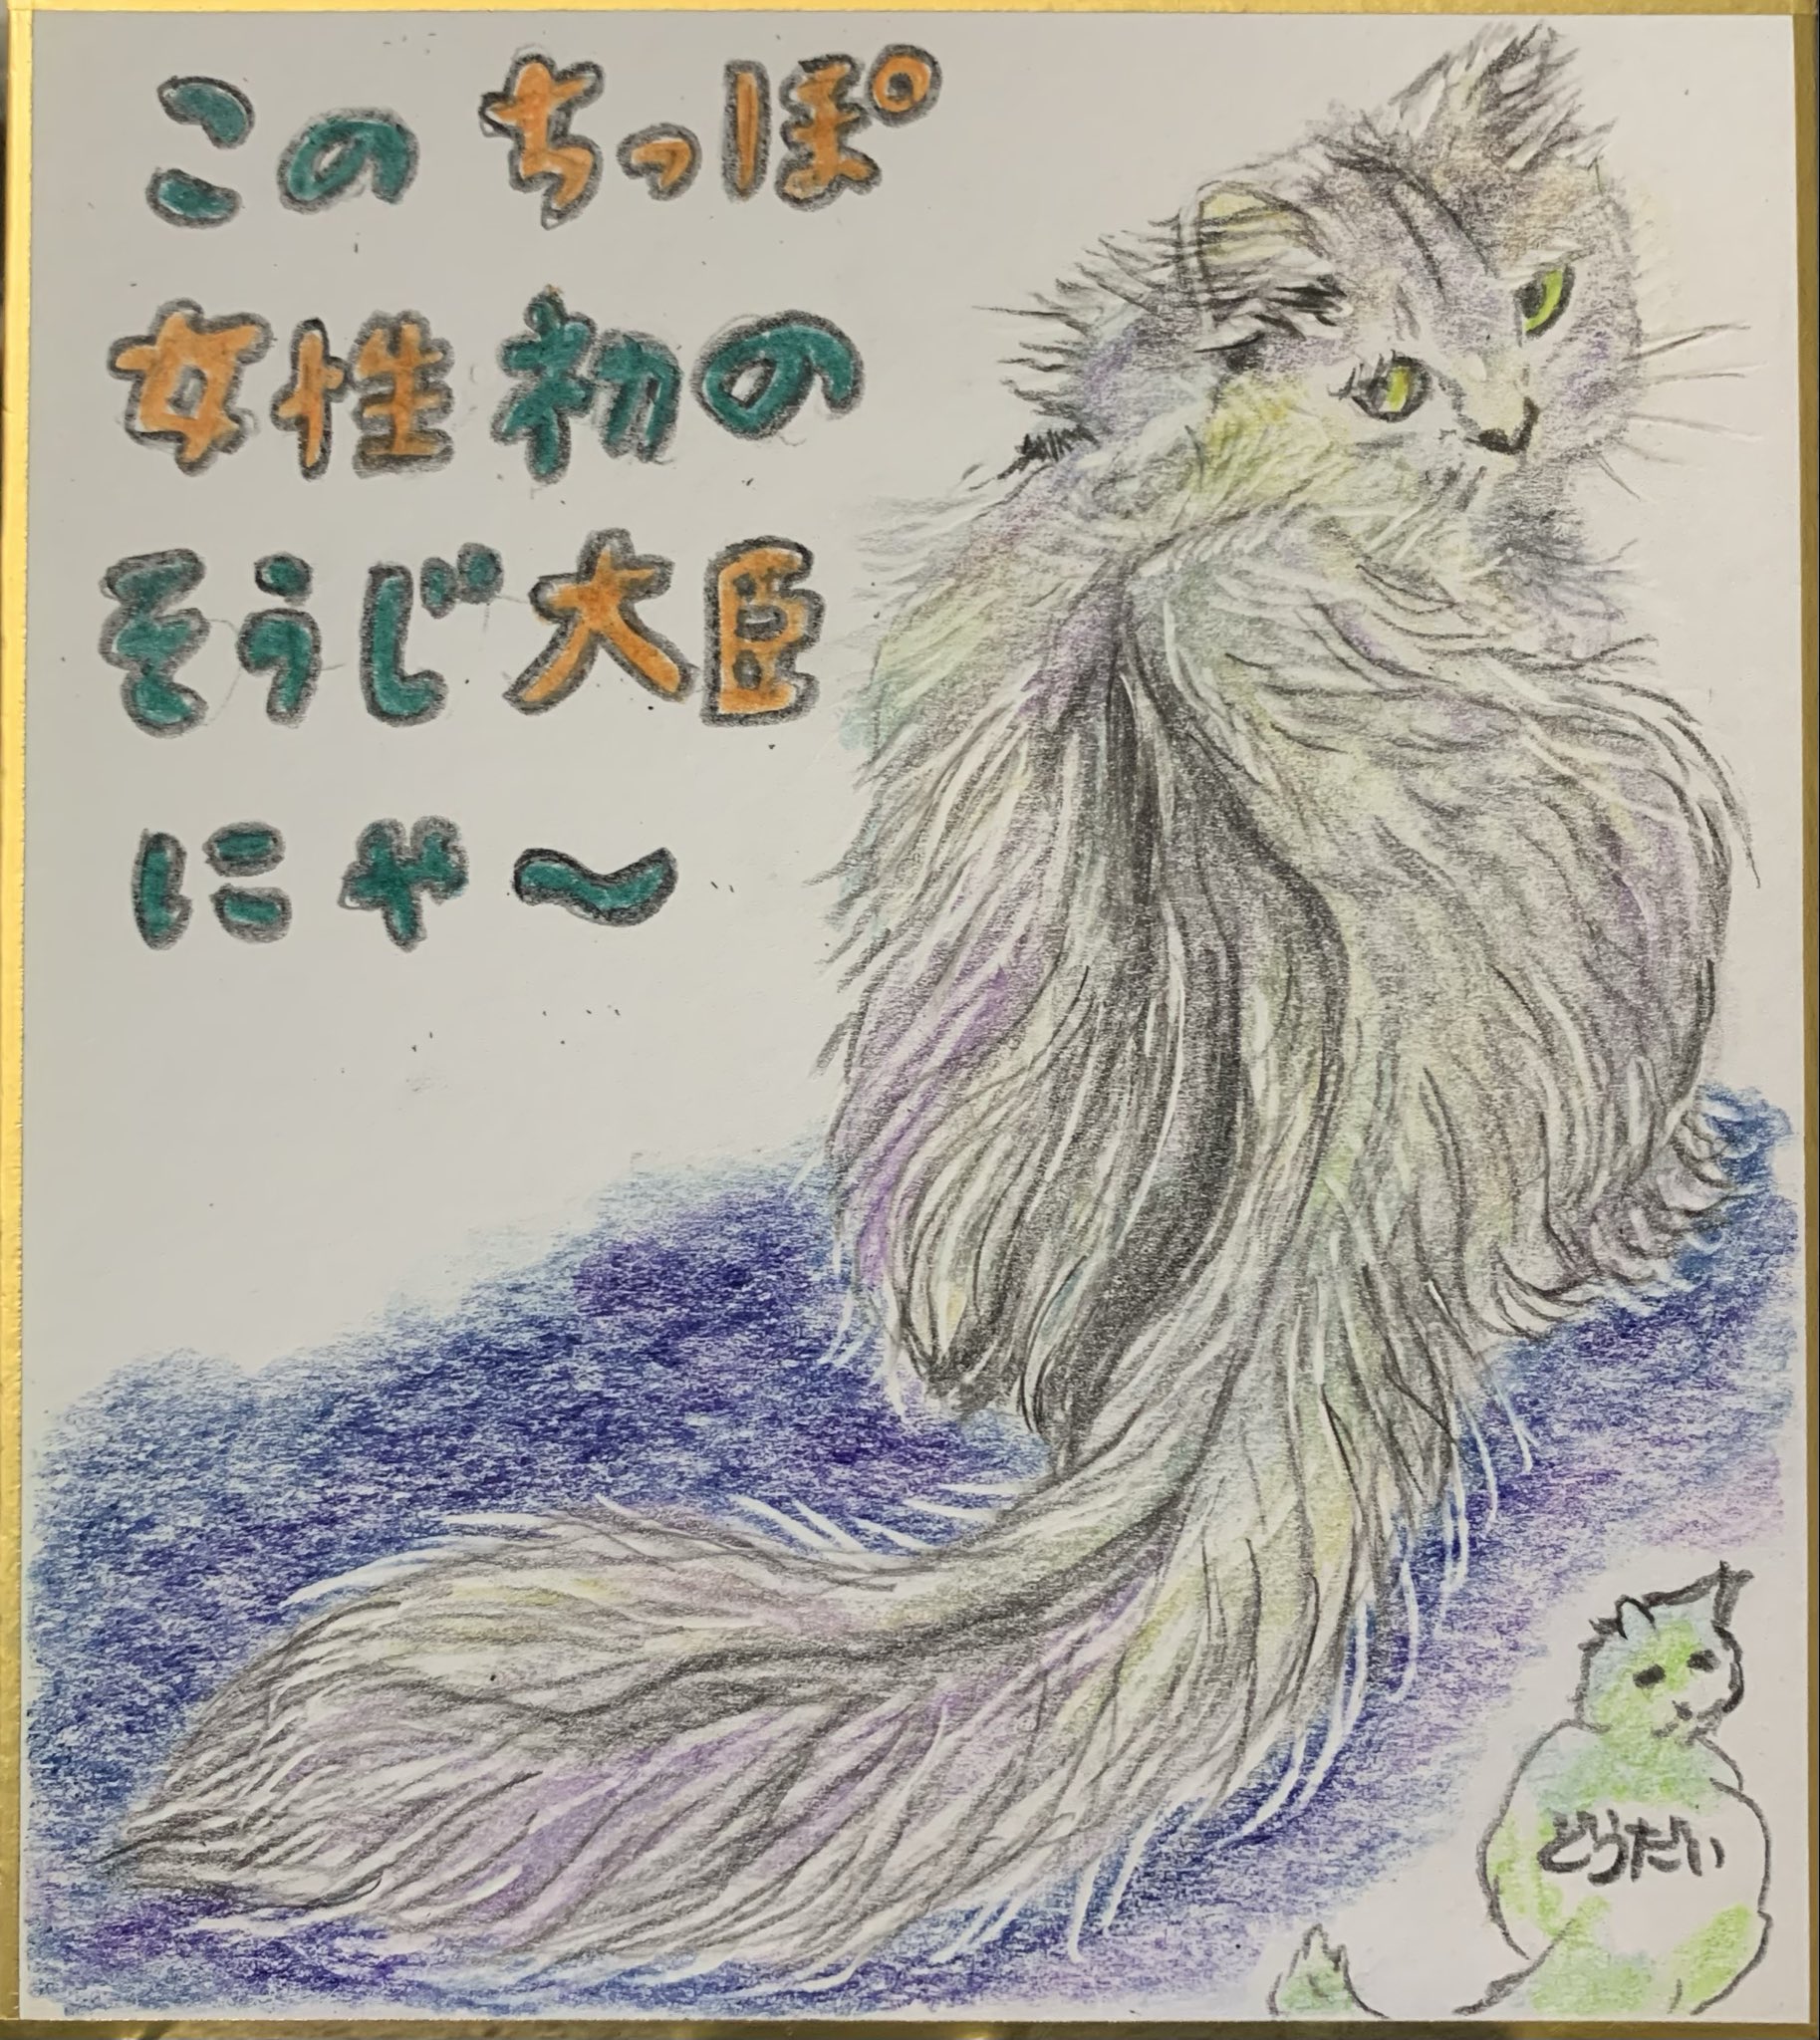 このちっぽ
女性初の
そうじ大臣
にゃ～
どうだい